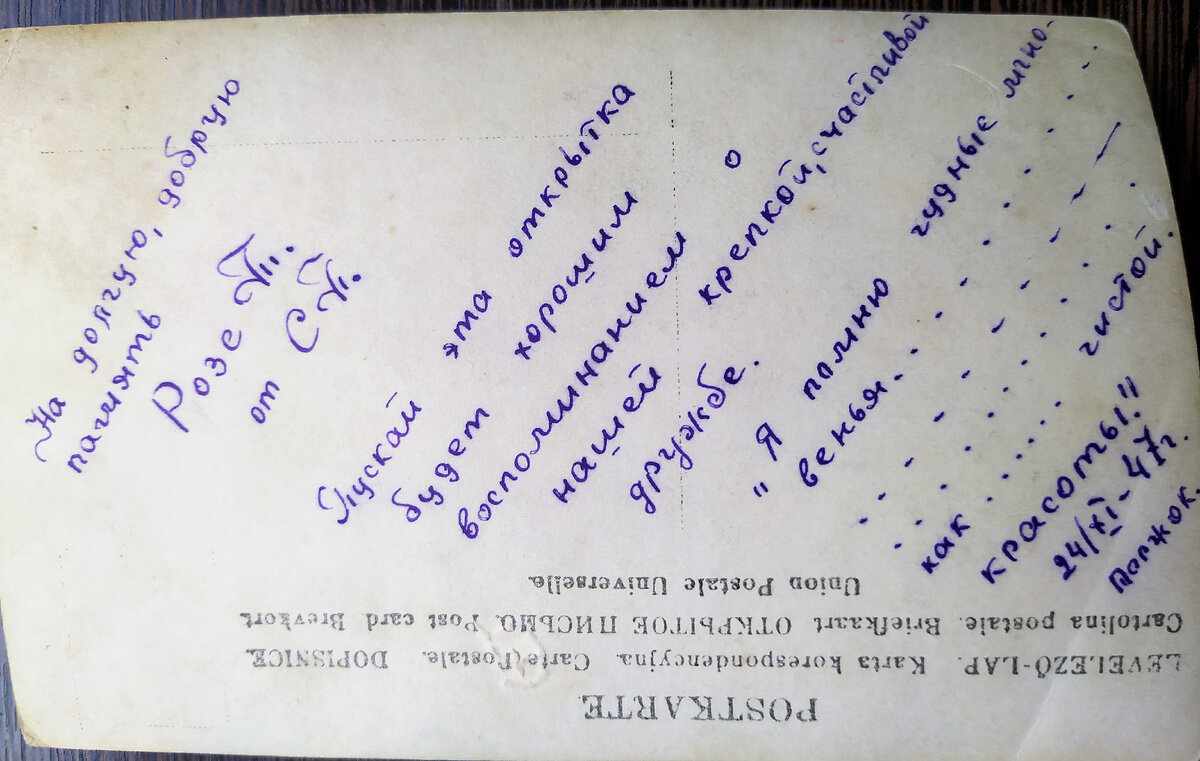 На долгую, добрую
память
Розе П.
от С.П.
Пускай эта открытка
будет хорошим
воспоминанием о
нашей крепкой, счастливой
дружбе.
"Я помню чудные мгно-
венья. . . . . . . . .
. . . . . - . - . - —
. . . . . . . . .
как ..... чистой.
красоты!"
24/XI - 47г.
POSTKARTE
LEVELEZŐ-LAP. Karta korespondencyjna. Carte Postale. DOPISNICE.
Cartolina postale. Briefkaart ОТКРЫТОЕ ПИСЬМО. Post card Brevkort.
Union Postale Universelle.